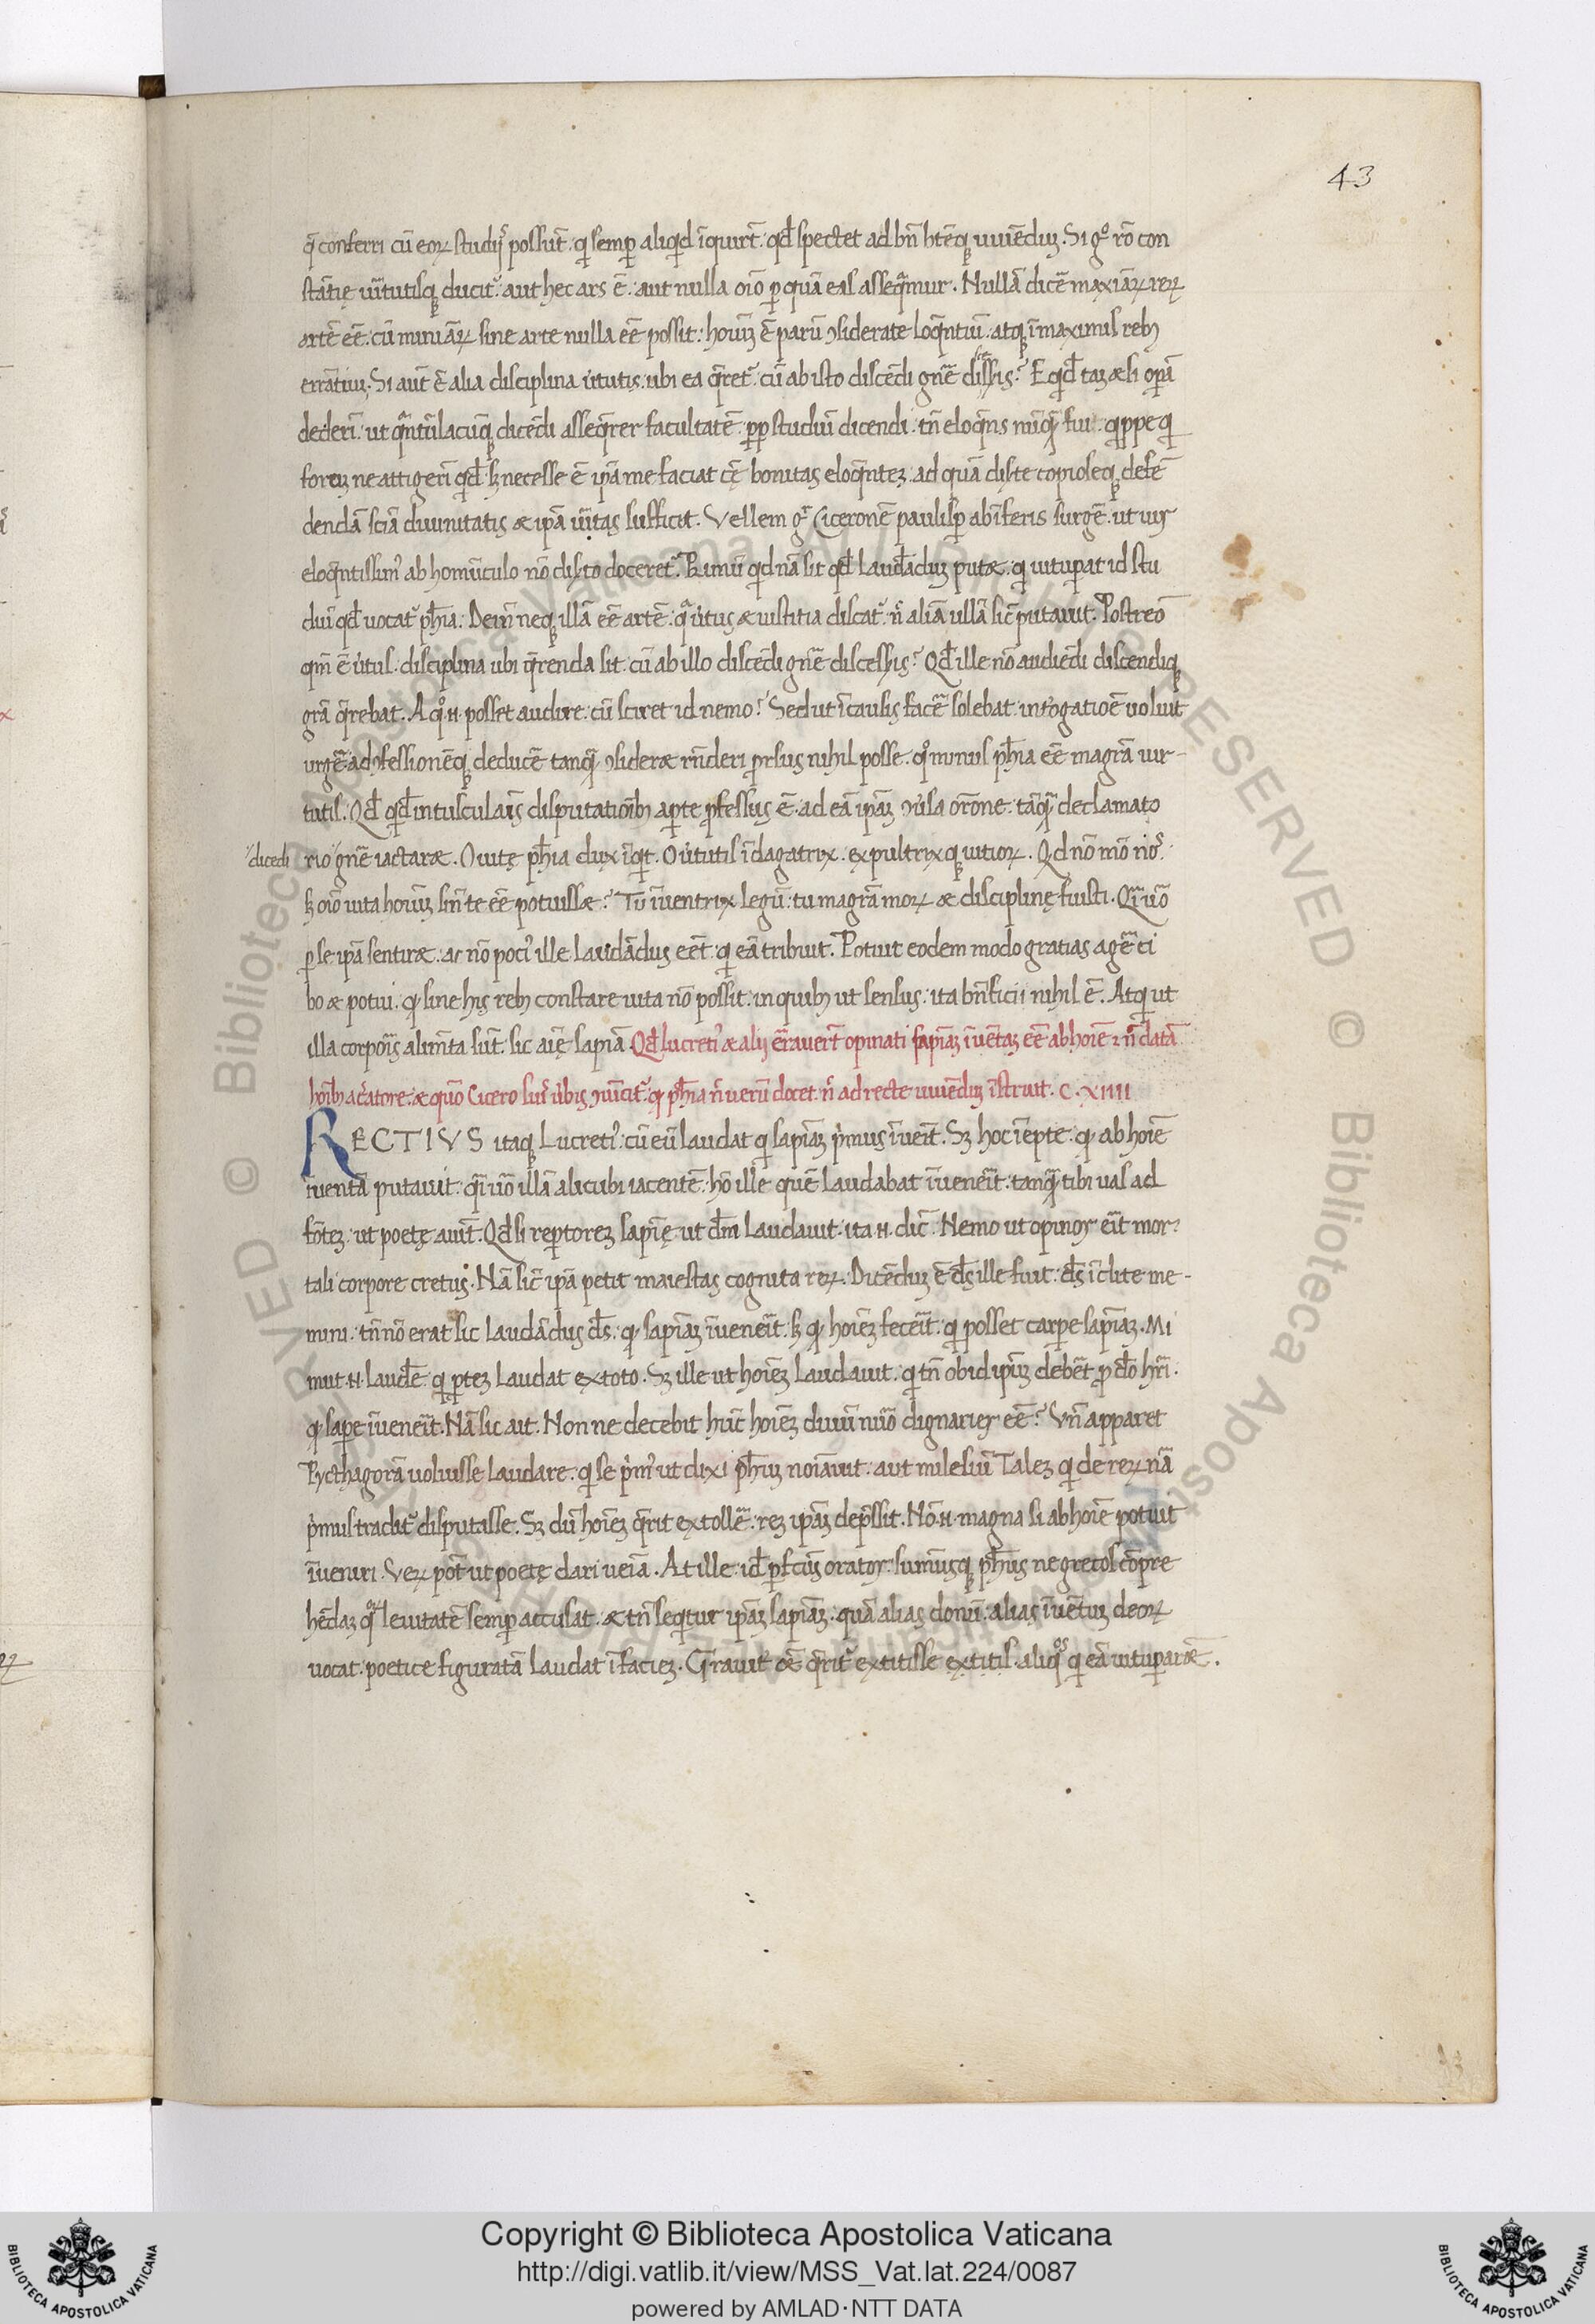 43
q̄ conferri cū eoꝝ studijˢ possūt. qͥ semꝑ aliqͥd īquirūt. qd̄ spectet ad bn̄ btēqꝫ uiuēduꝫ. Si gͦ rō con
stātię uͥtutisqꝫ ducitᷣ. aut hec ars ē. aut nulla oīo ꝑ quā eas asseqͣmur. Nullā dicē̄ maxiāꝝ reꝝ
artē eē. cū miniāꝝ sine arte nulla eē possit. hoīuꝫ ē parū ꝯsiderate loqͣntiū. atqꝫ ī maximis rebꝫ
errātiuꝫ. Si aūt ē alia disciplina uͥtutis. ubi ea qͣretᷣ. cū ab isto discēdi gn̄e
dederī. ut qͣntulācūqꝫ dicēdi asseqͣrer facultatē. ꝓꝑ studiū dicendi. tn̄ eloqͣns nūqͣ fui. qͥppe qͥ
foruꝫ ne attigerī qͥdē. sꝫ necesse ē ipā me faciat cę̄ bonitas eloqͣnteꝫ. ad quā diſ̄te copioseqꝫ defē
dendā sciā diuinitatis æ ipā uͥitas sufficit. Vellem gͦ Ciceronē paulisꝑ ab īferis surgē. ut uir
eloqͣntissimꝰ ab homūculo nō diſ̄to doceretᷣ. Primū qͥdnā sit qd̄ laudāduꝫ putæ. qͥ uituꝑat id stu
diū qd̄ uocatᷣ pħia. Dein̄ neqꝫ illā eē artē. qͣ uͥtus æ iustitia discatᷣ. n̄ aliā ullā sic̄ putauit. Postreō
qm̄ ē uͥtus. disciplina ubi qͣrenda sit. cū ab illo discēdi gn̄e discessis? Qd̄ ille nō audiēdi discendiqꝫ
grā qͣrebat. A qͦ .n. posset audire. cū sciret id nemo? Sed ut ī causis facē̄ solebat. int̓ogatiōe uoluit
urgē̄. ad ꝯfessionēqꝫ deducē̄ tanqͣ ꝯsideræ rn̄deri ꝓrsus nihil posse. qͦminus pħia eē magrā uir-
tutis. Qd̄ qͥdē in tusculanis disputatiōibꝫ aꝑte ꝓfessus ē. ad eā ipāꝫ ꝯuersa orōne. tāqͣ declamato
dicēdi
rio gn̄e iactaræ. O uitę pħia dux īqͥt. O uͥtutis īdagatrix. expultrixqꝫ uitioꝝ. Qd nō mō nos
sꝫ oīo uita hoīuꝫ sin̄ te eē potuissæ? Tu īuentrix legū. tu magrā moꝝ æ disciplinę fuisti. Qͣi uō
ꝑ se ipā sentiræ. ac nō potiꝰ ille laudādus eēt. qͥ eā tribuit. Potuit eodem modo gratias agē̄ ci
bo æ potui. qꝫ sine his rebꝫ constare uita nō possit. in quibꝫ ut sensus. ita bn̄ficii nihil ē. Atqͥ ut
illa corporis alimn̄ta sūt. sic aīę sapiā. Qd̄ lucretiꝰ æ alij errauert̄ opinati sapiāꝫ īuētaꝫ eē ab hoīe ⁊ n̄ datā
hoībꝫ a creatore. æ quō Cicero suis uͥbis ꝯuīcitᷣ. qꝫ pħia n̄ uerū docet. n̄ ad recte uiuēduꝫ īstruit. C. XIIII
RECTIVS itaqꝫ Lucretiꝰ. cū eū laudat qͥ sapiāꝫ pͥmus īueīt. Sꝫ hoc īepte. qꝫ ab hoīe
īuentā putauit. qͣi uō illā alicubi iacentē. hō ille quē laudabat īuenerit. tanqͣ tibi uas ad
fōteꝫ ut poetę aiūt. Qd si reꝑtoreꝫ sapīę ut dm̄ laudauit. ita .n. dic̄. Nemo ut opinor erit mor
tali corpore cretus. Nā sic̄ ipā petit maiestas cognita reꝝ. Dicēduꝫ ē ds̄ ille fuit. ds̄ īclite me-
mini. tn̄ nō erat sic laudādus ds̄. qꝫ sapiāꝫ īuenerit. sꝫ qꝫ hoīeꝫ fecerit. qͥ posset caꝑe sapiāꝫ. Mi
nuit .n. laudē. qͥ ꝑteꝫ laudat ex toto. Sꝫ ille ut hoīeꝫ laudauit. qͥ tn̄ ob id ipūꝫ debēt ꝓ dō hr̄i.
qꝫ sapē īuenerit. Nā sic ait. Non ne decebit hūc hoīeꝫ diuū nūō dignarier eē? Vn̄ apparet
Pycthagorā uoluisse laudare. qͥ se pͥmꝰ ut dixi pħuꝫ noīauit. aut milesiū Taleꝫ qͥ de reꝝ nā
pͥmus traditᷣ disputasse. Sꝫ dū hoīeꝫ qͣrit extollē̄. reꝫ ipāꝫ dep̄ssit. Nō .n. magna si ab hoīe potuit
īueniri. Veꝝ pōt ut poetę dari ueīa. At ille. idē ꝑfctūs orator. sumusqꝫ pħus
hēdaꝫ qͣꝝ leuitatē semꝑ accusat. æ tn̄ seqͥtur ipāꝫ sapiāꝫ. quā alias donū. alias īuētuꝫ deoꝝ
uocat. poetice figuratā laudat ī facieꝫ. Grauit̓ ēt qͣritᷣ extitisse aliqͦs qͥ eā uituꝑaræ.
Copyright © Biblioteca Apostolica Vaticana
http://digi.vatlib.it/view/MSS_Vat.lat.224/0087
powered by AMLAD·NTT DATA
BIBLIOTECA APOSTOLICA VATICANA
BIBLIOTECA APOSTOLICA VATICANA